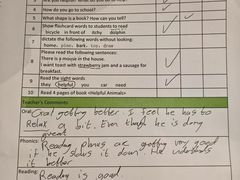 3 Are you helpful? What do you do to help?
4 How do you go to school?
5 What shape is a book? How can you tell?
6 Show flashcard words to students to read
bicycle in front of itchy dolphin
7 dictate the following words without looking:
home, pine, bark, top, draw
8 Please read the following sentences:
There is a mouse in the house.
I want toast with strawberry jam and a sausage for
breakfast.
9 Read the sight words
they helpful you car need
10 Read 4 pages of book <Helpful Animals>
Teacher's Comments
Oral: Goal getting better. I feel he has to
Relax a bit. Even though he is doing
great
Phonics: Reading phras are getting very good
if he slows it down he understands
it better
Reading: Reading is good